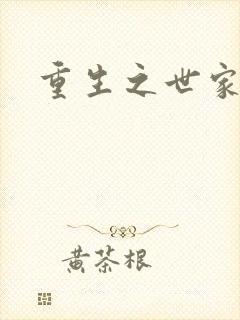 重生之世家
黄茶根